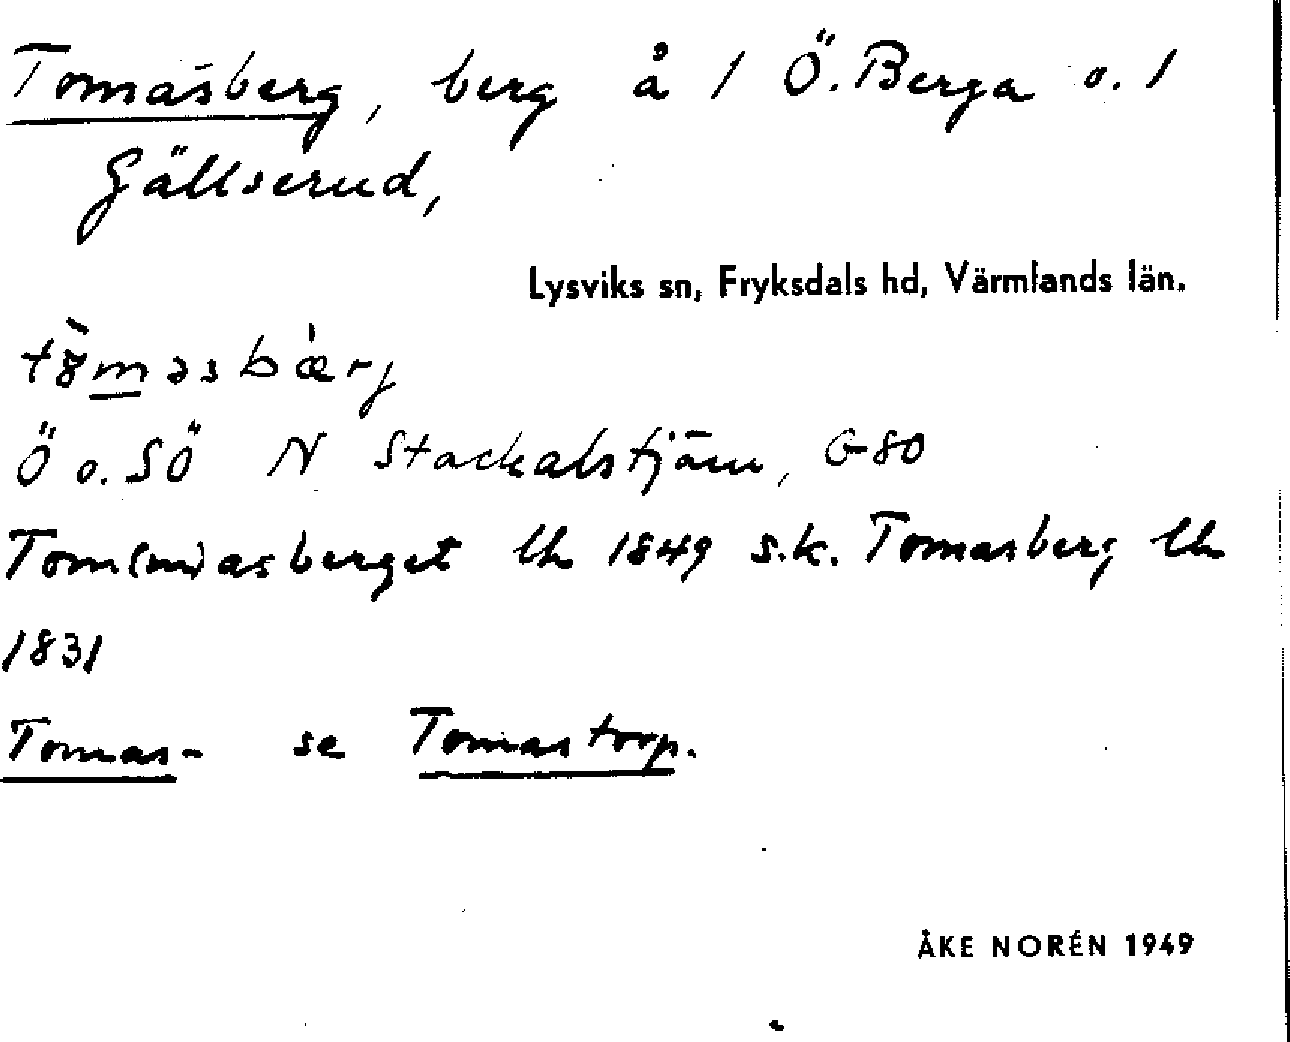 Tomasberg, berg å 1 Ö. Berga o. 1
Gällserud,
Lysviks sn, Fryksdals hd, Värmlands län.
Ö o. SÖ N Stackalstjärn, G80
Tom(m)asberget lh 1849 s.k. Tomasberg lh
1831
Tomas- se Tomastorp.
ÅKE NORÉN 1949